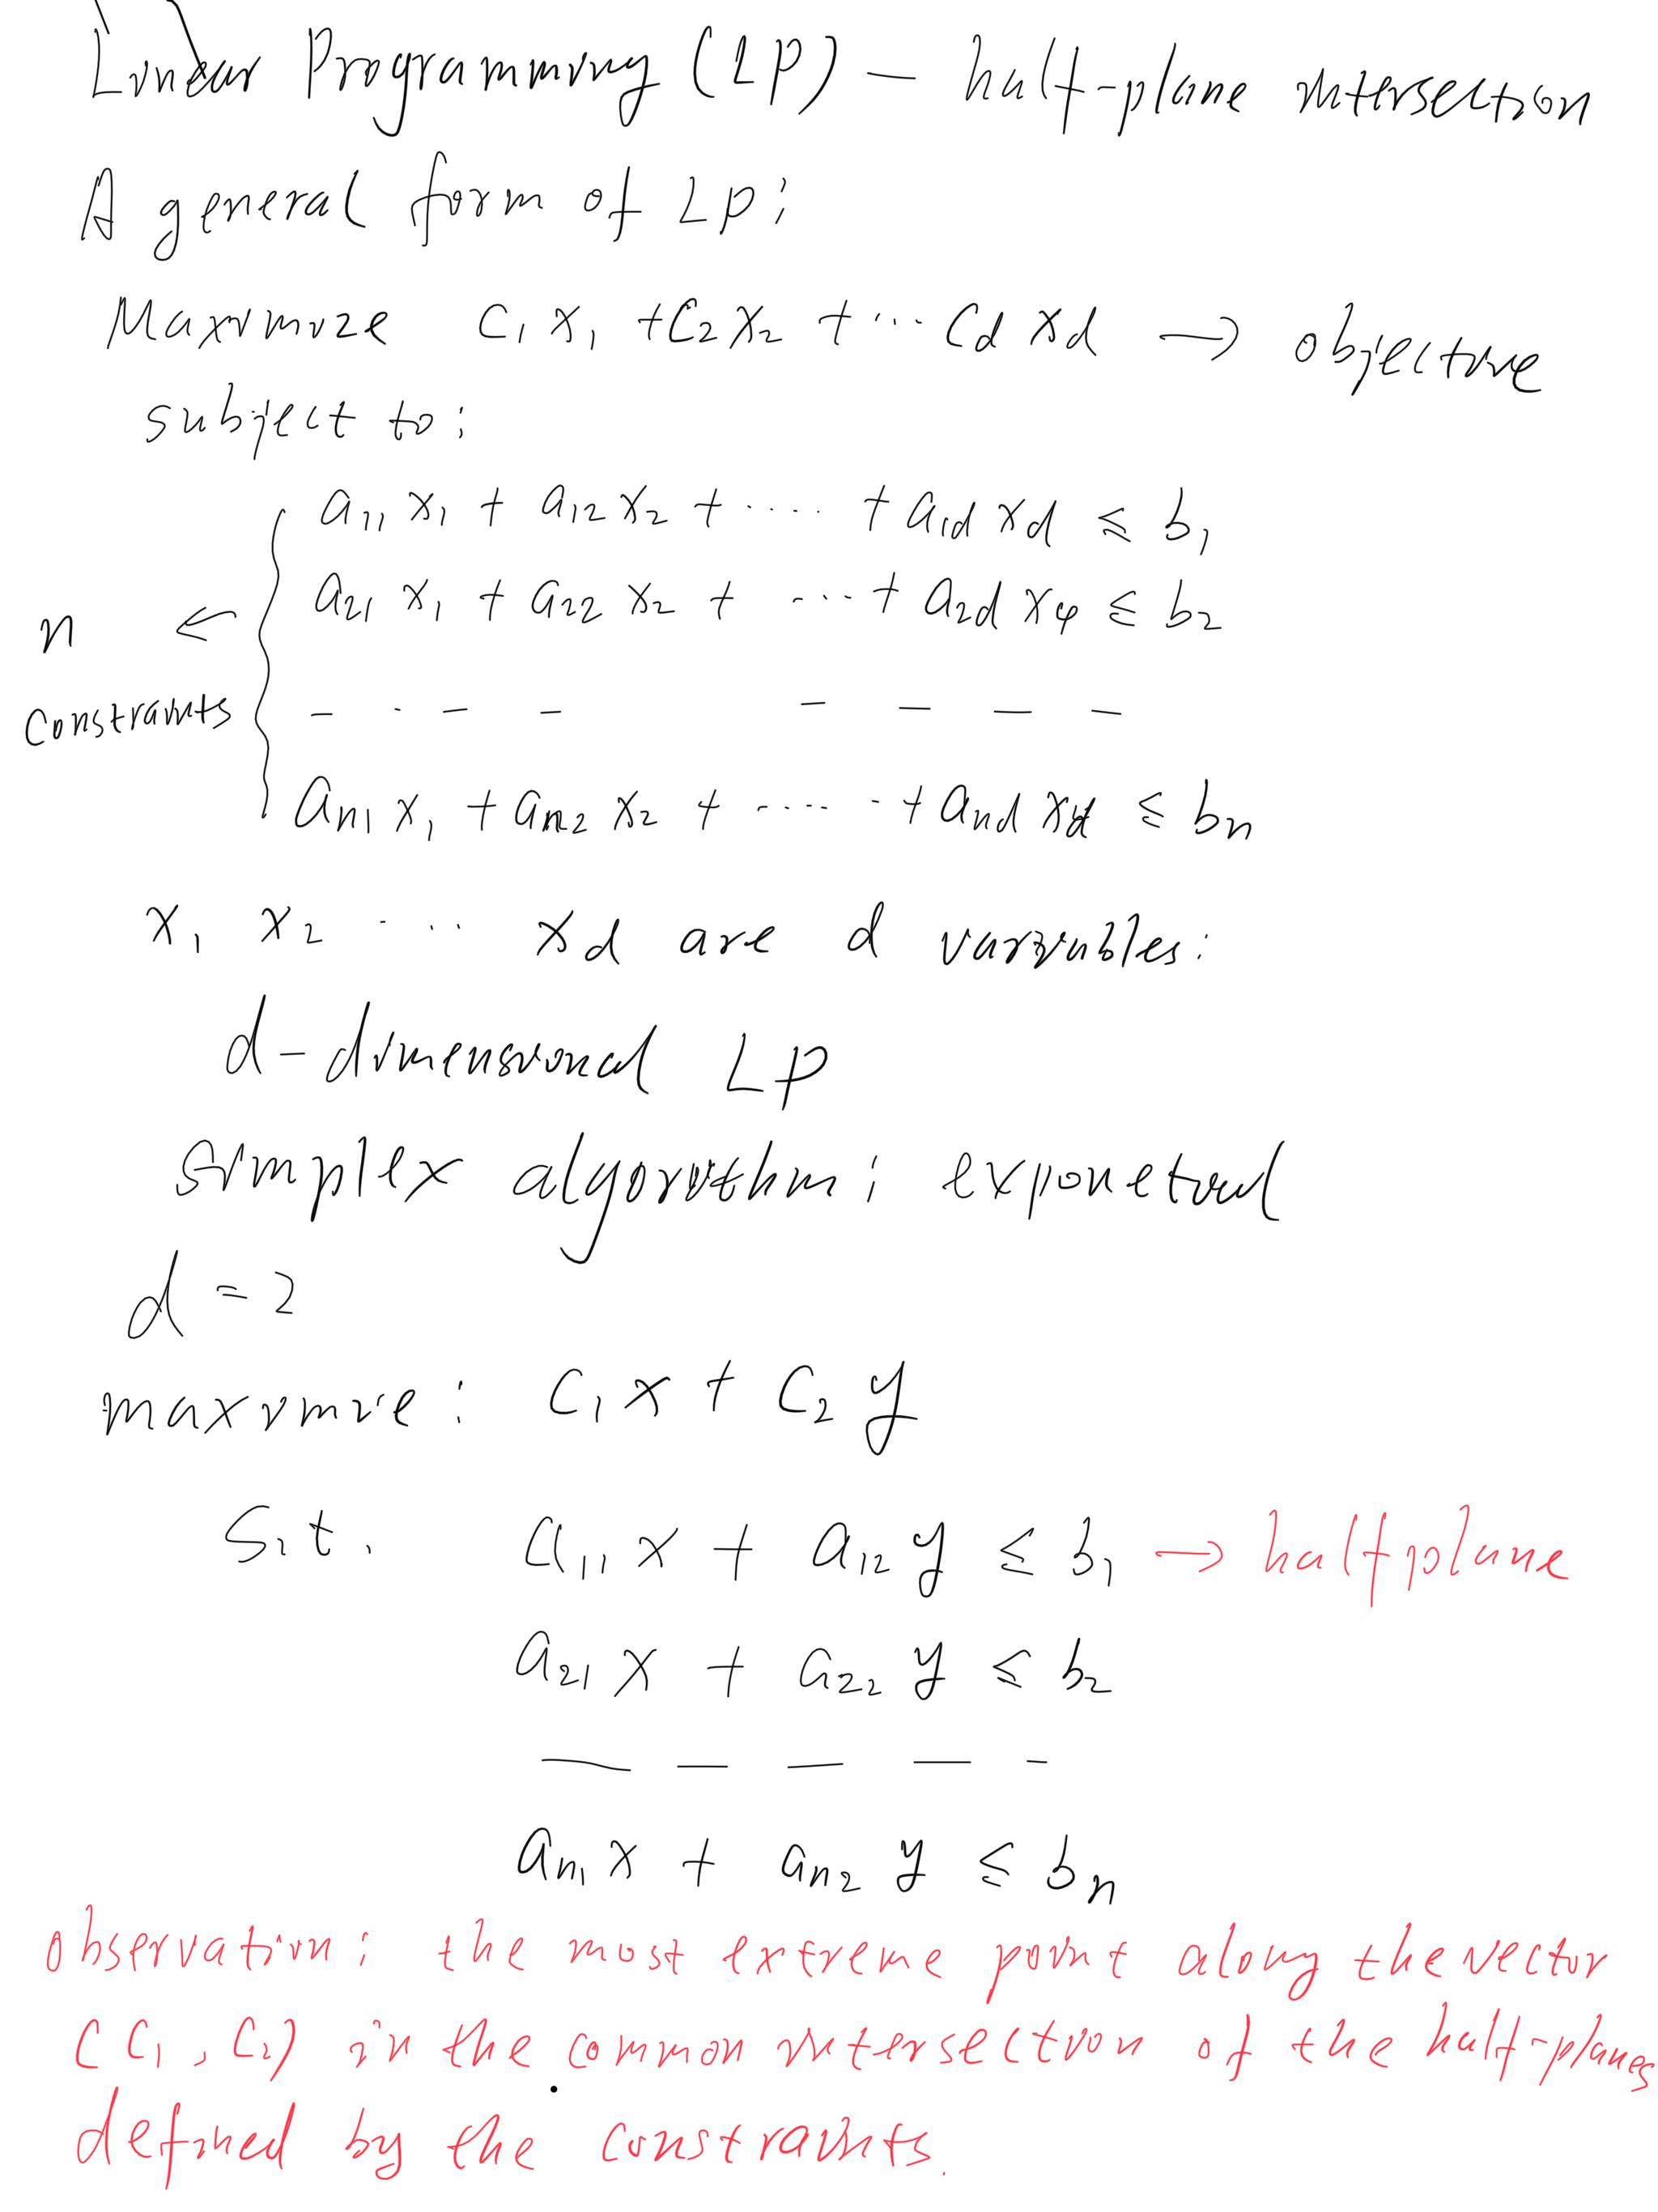 Linear Programming (LP) — half-plane intersection
A general form of LP:
Maximize c₁x₁ + c₂x₂ + ... c_d x_d → objective
subject to:
a₁₁x₁ + a₁₂x₂ + ..... + a₁d x_d ≤ b₁
a₂₁x₁ + a₂₂x₂ + ..... + a₂d x_d ≤ b₂
n ←
constraints
— - — — — — — —
aₙ₁x₁ + aₙ₂x₂ + ...... + aₙd x_d ≤ bₙ
x₁ x₂ ... x_d are d variables:
d-dimensional LP
simplex algorithm: exponetial
d = 2
maximize: c₁x + c₂y
s.t. a₁₁x + a₁₂y ≤ b₁ → halfplane
a₂₁x + a₂₂y ≤ b₂
— — — — -
aₙ₁x + aₙ₂y ≤ bₙ
observation: the most extreme point along the vector
(c₁, c₂) in the common intersection of the half-planes
defined by the constraints.